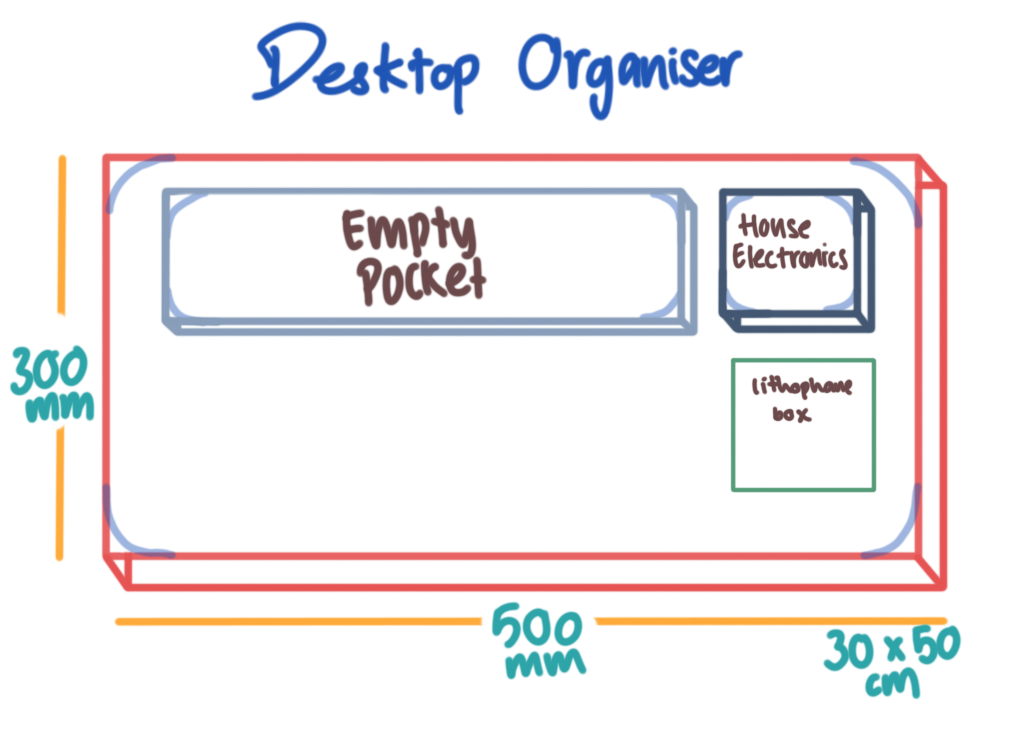 Desktop Organiser
Empty
Pocket
House
Electronics
300
mm
lithophane
box
500
mm
30 x 50
cm